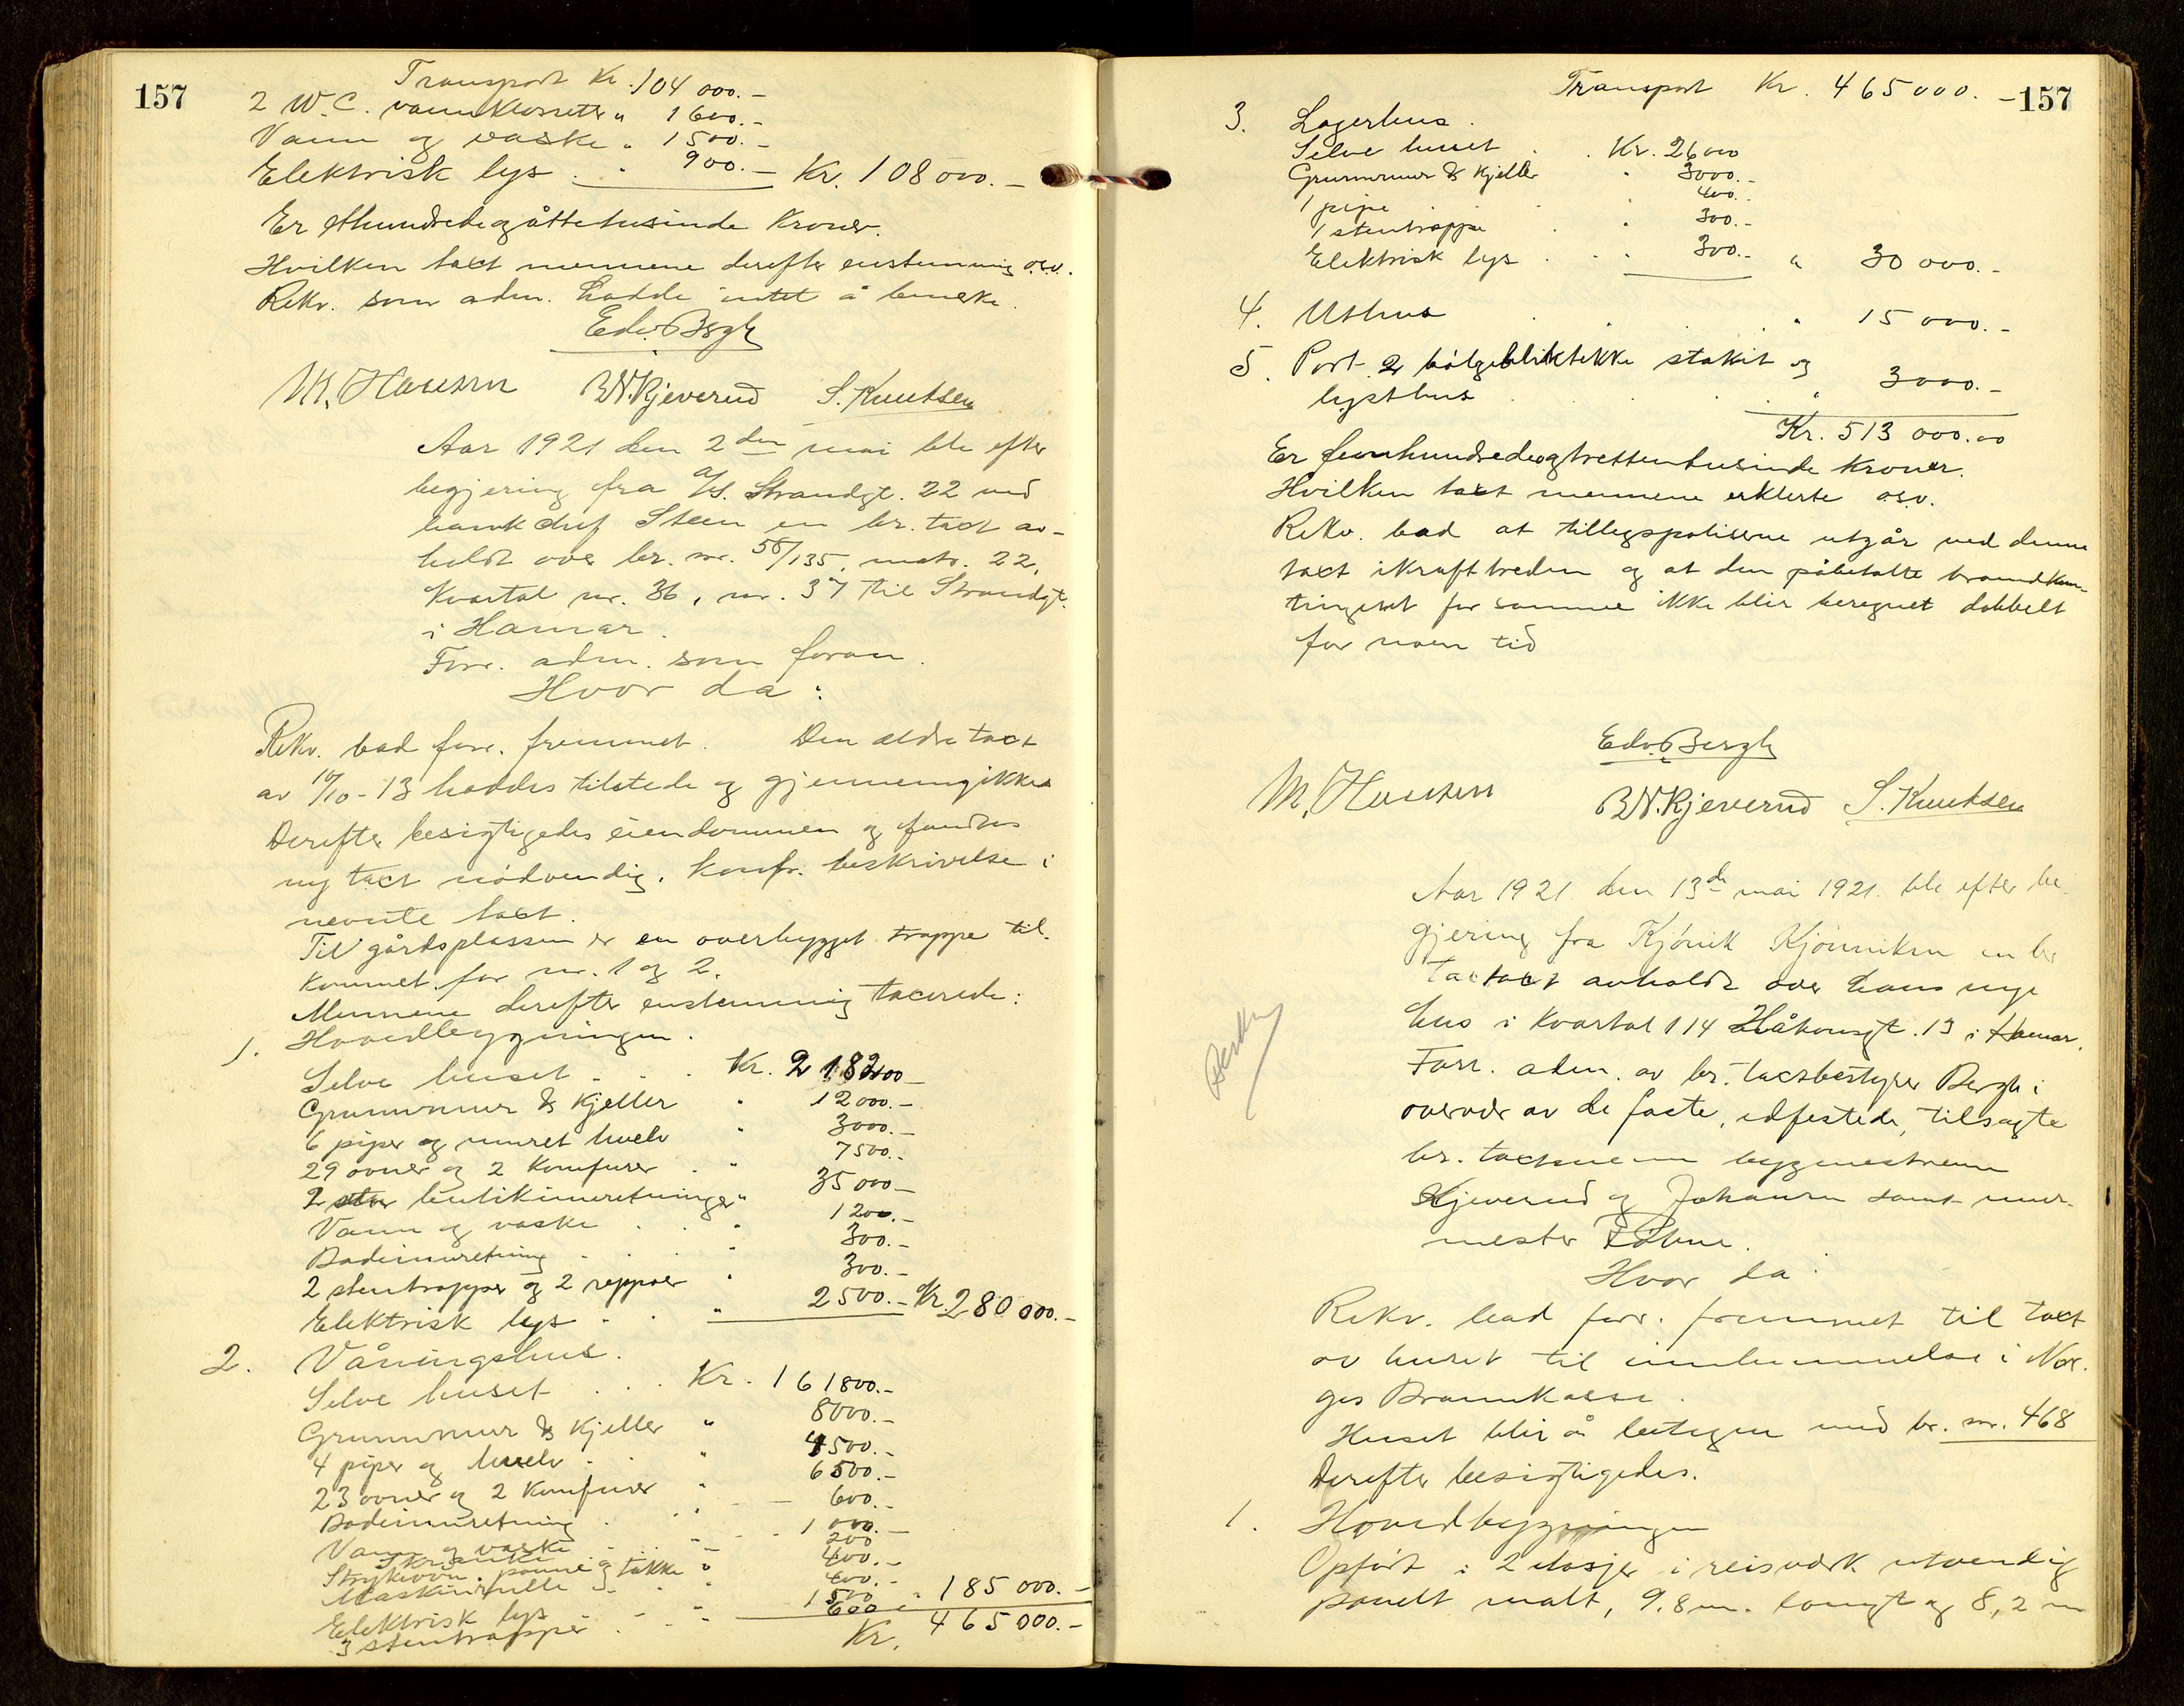 157
Transport Kr. 104 000.-
2 W.C. vannklosetter " 1600.-
Vann og vaske " 1500.-
Elektrisk lys . " 900.- Kr. 108 000.-
Er ethundredeogåttetusinde Kroner.
Hvilken taxt mennene derefter enstemmig o.s.v.
Rekv. som adm. hadde intet å bemerke.
Edv. Bergh
M. Hansen B.N. Kjeverud S. Knutsen
Aar 1921 den 2den mai ble efter
begjering fra A/S. Strandgt. 22 ved
bankchef Steen en br. taxt av-
holdt over br. nr. 56/135, matr. 22,
Kvartal nr. 36, nr. 37 til Strandgt.
i Hamar.
Forr. adm. som foran.
Hvor da:
Rekv. bad forr. fremmet. Den ældre taxt
av 10/10-13 haddes tilstede og gjennemgikkes
Derefter besigtigedes eiendommen og fandtes
ny taxt nödvendig, konfr. beskrivelse i
nevnte taxt.
Til gårdsplassen er en overbygget trappe til-
kommet for nr. 1 og 2.
Mennene derefter enstemmig taxerede:
1. Hovedbygningen.
Selve huset . . . Kr. 218200-
Grunnmur & Kjeller " 12000.-
6 piper og muret hvelv " 3000.-
29 ovner og 2 Komfurer . " 7500.-
2 butikinnretninger " 35000-
Vann og vaske . . " 1200.-
Badeinnretning . . . " 300.-
2 stentrapper og 2 reppoer " 300.-
Elektrisk lys . . " 2500.- Kr. 280 000.-
2. Våningshus.
Selve huset . . . Kr. 161800.-
Grunnmur & Kjeller " 8000.-
4 piper og hvelv . . " 4500.-
23 ovner og 2 Komfurer " 6500.-
Badeinnretning . " 600.-
Vann og vaske . . . 1000.-
Skranke 200
Strykeovn, panne og takke " 400.-
Maskinrulle . . " 400.-
Elektrisk lys . . " 1500 " 185 000.-
3 stentrapper . . " 600
Kr. 465 000.-
157
Transport Kr. 465000.-
3. Lagerhus.
Selve huset . . Kr. 26000
Grunnmur & Kjeller " 3000.-
1 pipe 400.-
1 stentrappe . " 300.-
Elektrisk lys . . " 300.- " 30 000.-
4. Uthus . . . " 15 000.-
5. Port 2 bölgebliktekke stakit og
lysthus . . . " 3000.-
Kr. 513 000.00
Er femhundredeogtrettentusinde Kroner.
Hvilken taxt mennene erklerte osv.
Rekv. bad at tillegspoliserne utgår ved denne
taxt ikrafttreden og at den påbetalte brandkon-
tingent for samme ikke blir beregnet dobbelt
for noen tid
Edv. Bergh
M. Hansen B.N. Kjeverud S. Knutsen
Aar 1921. den 13de mai 1921. ble efter be-
gjering fra Kjönik Kjönniksen en br
taxt avholdt over hans nye
hus i Kvartal 114 Håkonsgt. 13 i Hamar.
Forr. adm. av br. taxtbestyrer Bergh i
overvær av de faste, edfestede, tilsagte
br. taxtmenn bygmestrene
Kjeverud og Johansen samt mur-
mester
Hvor da:
Rekv. bad forr. fremmet til taxt
av huset til innlemmelse i Nor-
ges Brannkasse.
Huset blir å betegne med br. nr. 468
Derefter besigtigedes.
1. Hovedbygningen
Opfört i 2 etasjer i reisverk utvendig
panelt malt, 9.8 m. langt og 8,2 m